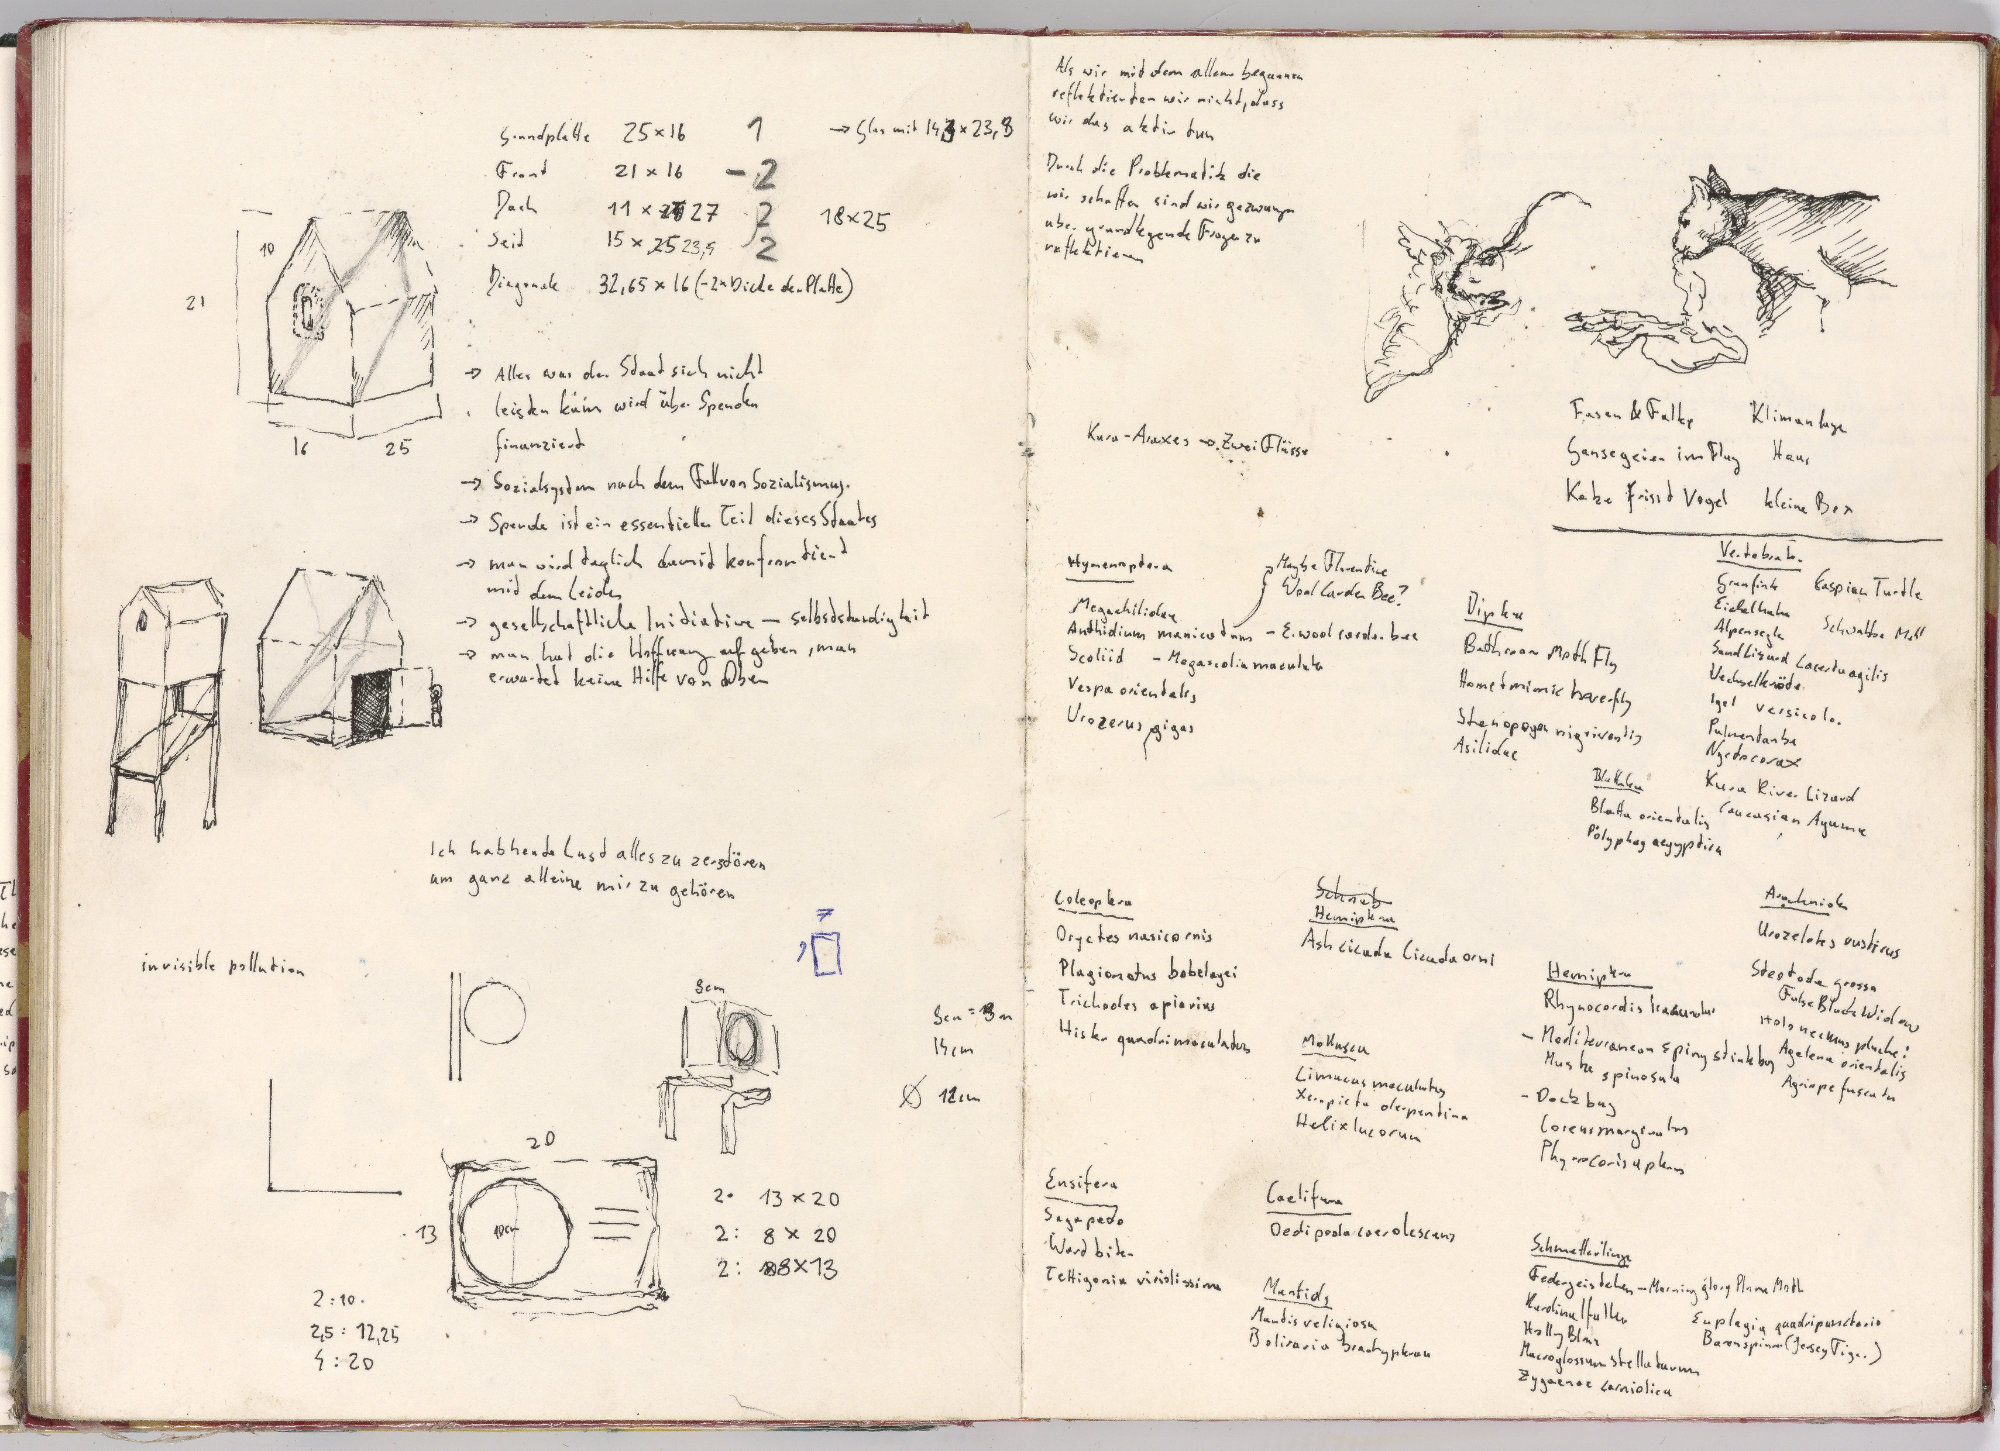 Grundplatte 25×16 1 → Glas mit 14,3 × 23,8
Front 21×16 – 2
Dach 11 × 27 2 18×25
Seid 15 × 25 23,5 2
Diagonale 32,65 × 16 (-2x Dicke der Platte)
10
21
16
25
→ Alles was der Staat sich nicht
leisten kann wird über Spenden
finanziert
→ Sozialsystem nach dem Fall von Sozialismus.
→ Spende ist ein essentieller Teil dieses Staates
→ man wird taglich damit konfrontiert
mit dem Leiden
→ gesellschaftliche Initiative – selbstständigkeit
→ man hat die Hoffnung aufgeben, man
erwartet keine Hilfe von Oben
Ich hab heute Lust alles zu zerstören
um ganz alleine mir zu gehören
invisible pollution
8cm
14cm
Ø 12cm
20
13
10cm
2: 13×20
2: 8×20
2: 8×13
2:10.
2,5: 12,25
4:20
Als wir mit dem allem begannen
reflektierten wir nicht, dass
wir das aktiv tun
Durch die Problematik die
wir schaffen sind wir gezwungen
über grundlegende Fragen zu
reflektieren
Kura-Araxes → Zwei Flüsse
Fasan & Falke Klimaanlage
Gänsegeier im Flug Haus
Katze frisst Vogel kleine Box
Hymenoptera
Maybe Florentine
Wool Carder Bee?
Megachilidae
Anthidium manicatum – E. wool carder bee
Scoliid – Megascolia maculata
Vespa orientalis
Urozerus gigas
Diptera
Bathroom Moth Fly
Hornet mimic hoverfly
Stenopogon nigriventris
Asilidae
Blattodea
Blatta orientalis
Polyphag aegyptica
Vertebrate
Grünfink Caspian Turtle
Eichelhäher
Alpensegler
Sand Lizard Lacerta agilis
Wechselkröte
Igel versicolo.
Palmentaube
Nyctocorax
Kura River Lizard
Caucasian Agama
Coleoptera
Oryctes nasicornis
Plagionotus bobelayei
Trichodes apiarius
Hister quadrimaculatus
Hemiptera
Ash cicada Cicada orni
Mollusca
Limacus maculatus
Xeropicta derpentina
Helix lucorum
Hemiptera
Rhynocoris
– Mediterranean spiny stink bug
Mustha spinosula
– Dock bug
Coreus marginatus
Phyrrocoris apterus
Arachnida
Urozelotes rusticus
Steatoda grossa
False Black Widow
Holocnemus pluchei
Agelena orientalis
Agriope fuscata
Ensifera
Saga pedo
Wart biter
Tettigonia viridissima
Caelifera
Oedipoda caerulescens
Mantids
Mantis religiosa
Bolivaria brachyptera
Schmetterlinge
Federgeistchen – Morning glory Plume Moth
Kardinalfalter
Holly Blue
Macroglossum stellatarum
Zygaenae carniolica
Euplagia quadripunctaria
Bärenspinner (Jersey Tiger)